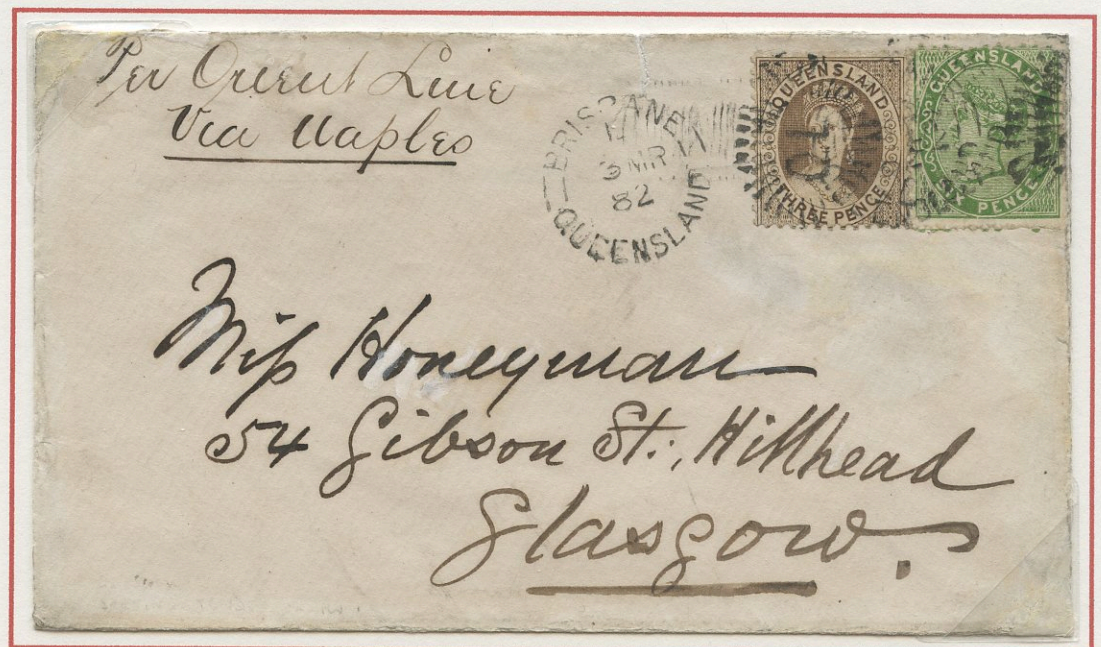 Per Orient Line
Via Naples
BRISBANE
3 MR
82
QUEENSLAND
QUEENSLAND
THREE PENCE
QUEENSLAND
SIX PENCE
Miss Honeyman
54 Gibson St., Hillhead
Glasgow.